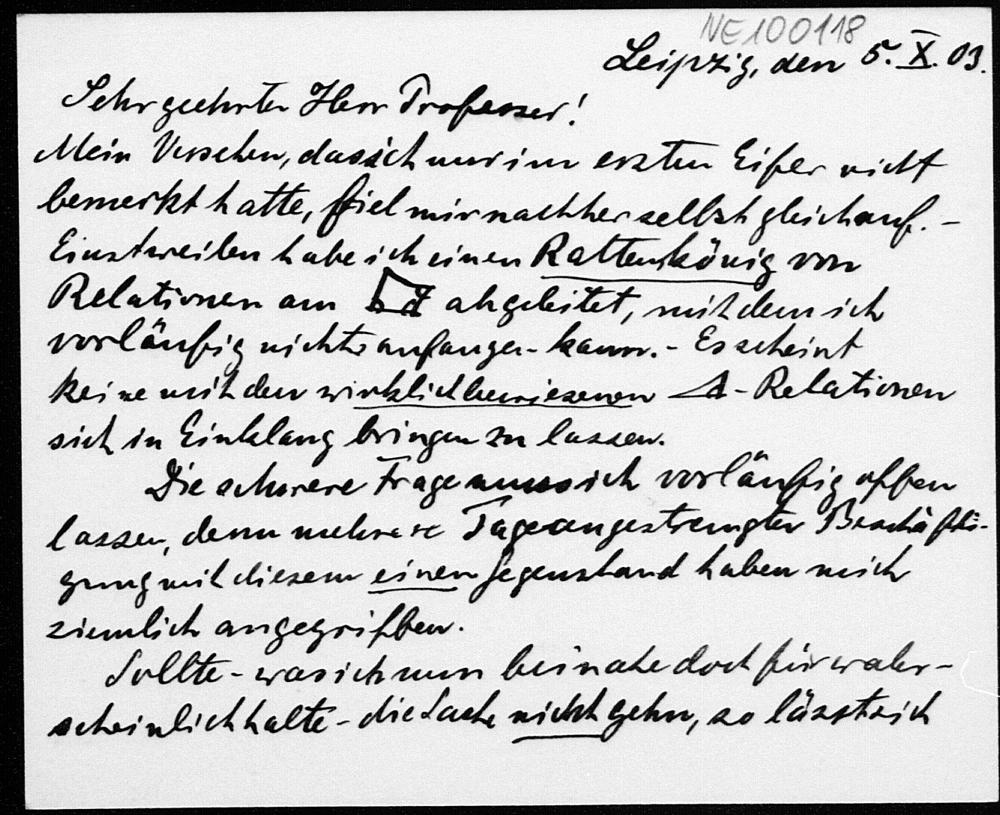 NE100118
Leipzig, den 5. X. 03.
Sehr geehrter Herr Professor!
Mein Versehen, das ich nur im ersten Eifer nicht
bemerkt hatte, fiel mir nachher selbst gleich auf. –
Einstweilen habe ich einen Rattenkönig von
Relationen am abgeleitet, mit dem ich
vorläufig nichts anfangen kann. – Es scheint
keine mit den wirklich bewiesenen Δ-Relationen
sich in Einklang bringen zu lassen.
Die schwere Frage muss ich vorläufig offen
lassen, denn mehrere Tage angestrengter Beschäfti-
gung mit diesem einen Gegenstand haben mich
ziemlich angegriffen.
Sollte – was ich nun beinahe doch für wahr-
scheinlich halte – die Sache nicht gehn, so lässt sich